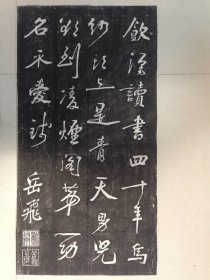 飲酒讀書四十年烏
紗頭上是青天男兒
欲到凌煙閣第一功
名不愛錢
岳飛